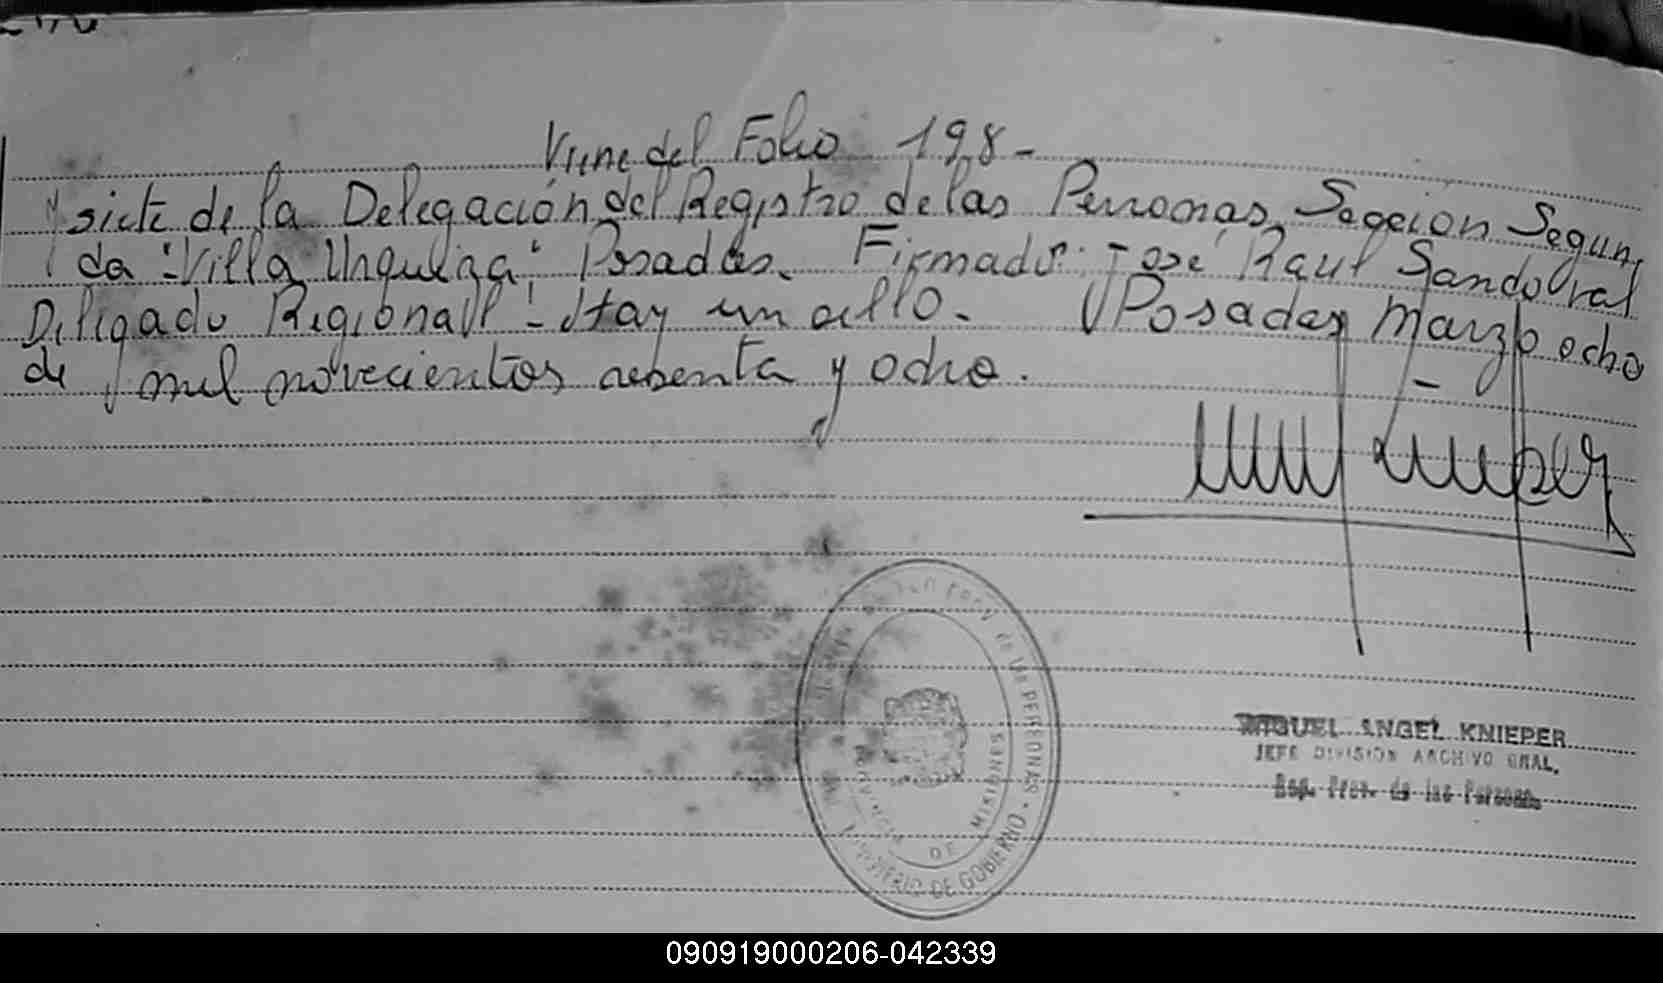 Viene del Folio 198-
y siete de la Delegación del Registro de las Personas, Sección Segun,
da "Villa Urquiza" Posadas. Firmado: José Raul Sandoval
Delegado Regional - Hay un sello. Posadas, Marzo ocho
de mil novecientos sesenta y ocho.
MIGUEL ANGEL KNIEPER
JEFE DIVISION ARCHIVO GRAL.
Reg. Prov. de las Personas
de las PERSONAS
PROVINCIA DE MISIONES
MINISTERIO DE GOBIERNO
090919000206-042339